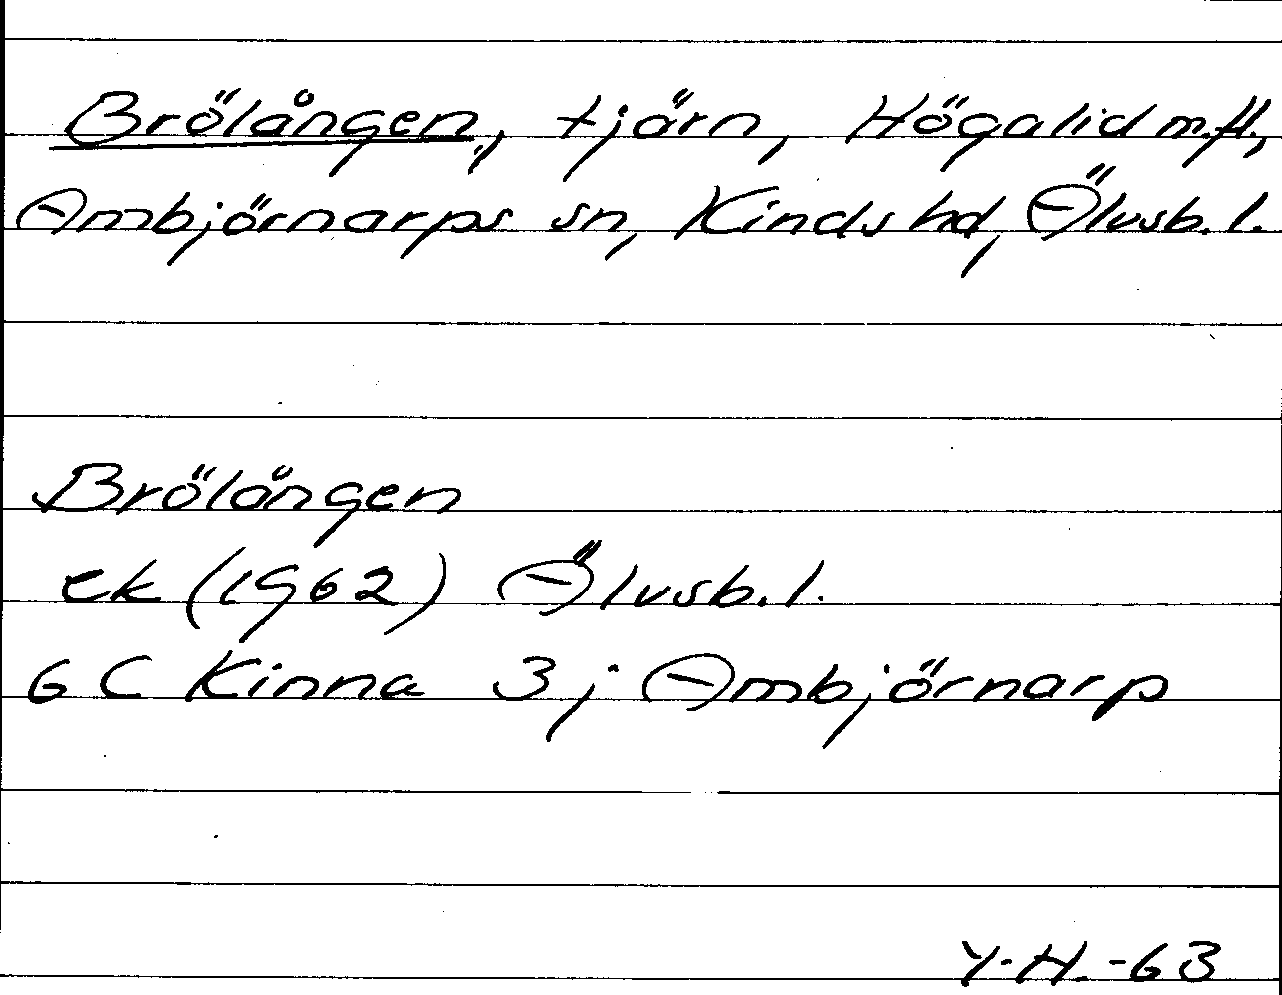 Brölången, tjärn, Högalid m.fl.,
Ambjörnarps sn, Kinds hd, Älvsb. l.
Brölången
ek (1962) Älvsb. l.
6 C Kinna 3 j Ambjörnarp
Y.H. -63